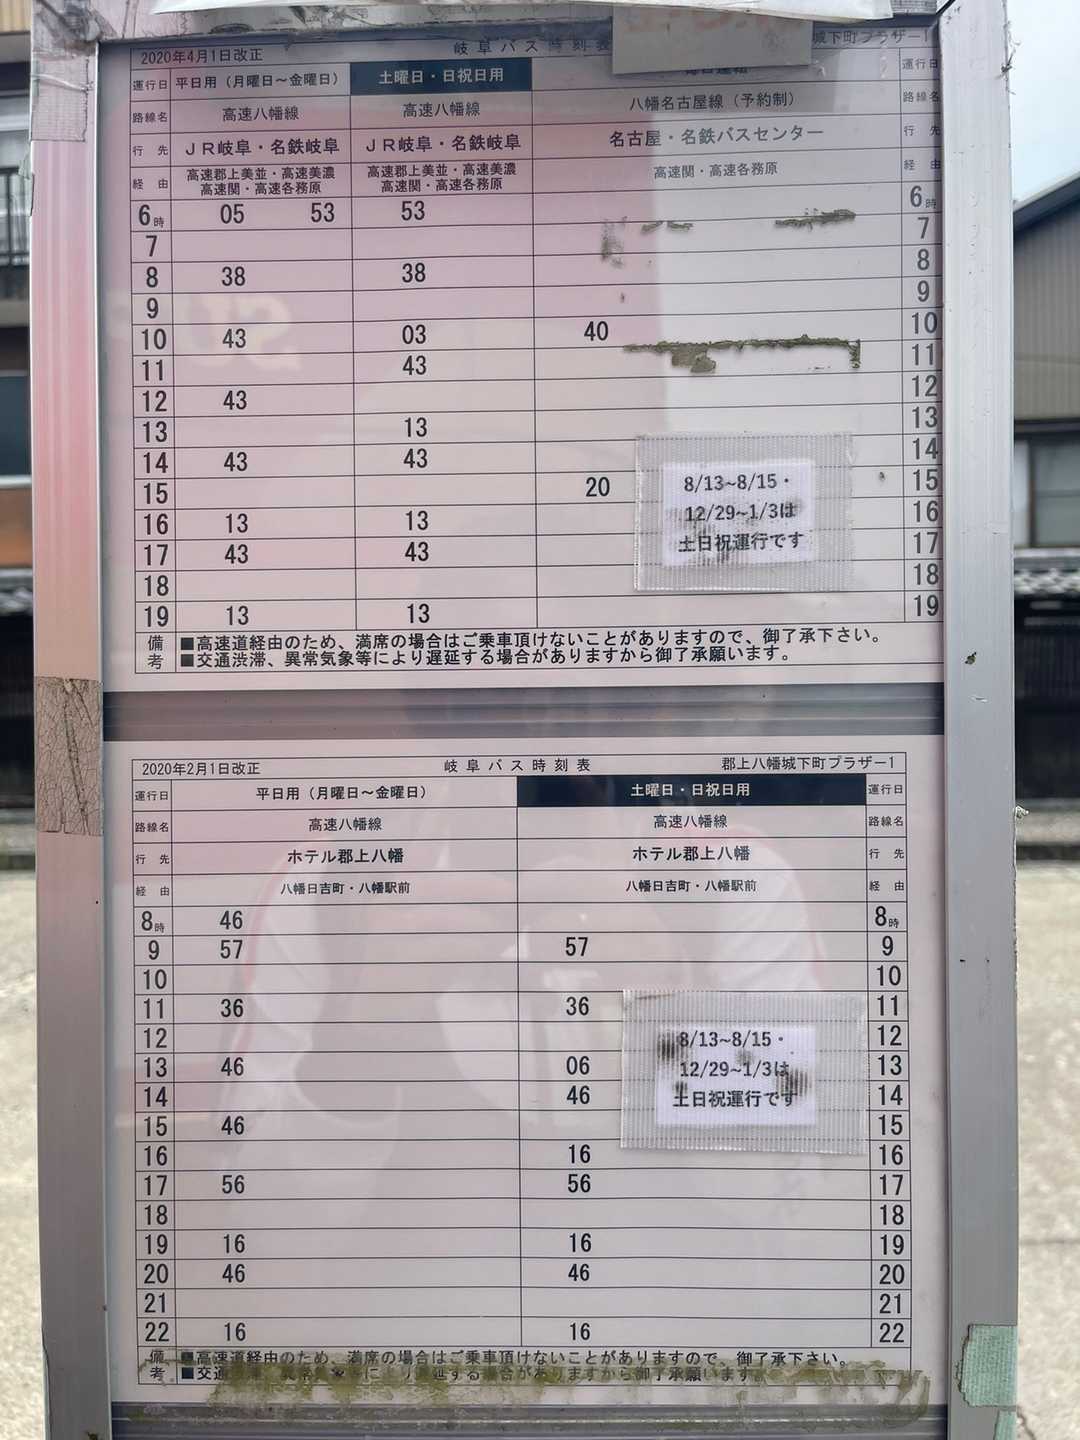 2020年4月1日改正 岐阜バス時刻表 城下町プラザー1
運行日 平日用（月曜日～金曜日） 土曜日・日祝日用 毎日運転 運行日
路線名 高速八幡線 高速八幡線 八幡名古屋線（予約制） 路線名
行先 JR岐阜・名鉄岐阜 JR岐阜・名鉄岐阜 名古屋・名鉄バスセンター 行先
経由 高速郡上美並・高速美濃 高速関・高速各務原 高速郡上美並・高速美濃 高速関・高速各務原 高速関・高速各務原 経由
6時 05 53 53 6時
7 7
8 38 38 8
9 9
10 43 03 40 10
11 43 11
12 43 12
13 13 13
14 43 43 14
15 20 15
16 13 13 16
17 43 43 17
18 18
19 13 13 19
8/13~8/15・
12/29~1/3は
土日祝運行です
備考 ■高速道経由のため、満席の場合はご乗車頂けないことがありますので、御了承下さい。
■交通渋滞、異常気象等により遅延する場合がありますから御了承願います。
2020年2月1日改正 岐阜バス時刻表 郡上八幡城下町プラザー1
運行日 平日用（月曜日～金曜日） 土曜日・日祝日用 運行日
路線名 高速八幡線 高速八幡線 路線名
行先 ホテル郡上八幡 ホテル郡上八幡 行先
経由 八幡日吉町・八幡駅前 八幡日吉町・八幡駅前 経由
8時 46 8時
9 57 57 9
10 10
11 36 36 11
12 12
13 46 06 13
14 46 14
15 46 15
16 16 16
17 56 56 17
18 18
19 16 16 19
20 46 46 20
21 21
22 16 16 22
8/13~8/15・
12/29~1/3は
土日祝運行です
備考 ■高速道経由のため、満席の場合はご乗車頂けないことがありますので、御了承下さい。
■交通渋滞、異常気象等により遅延する場合がありますから御了承願います。